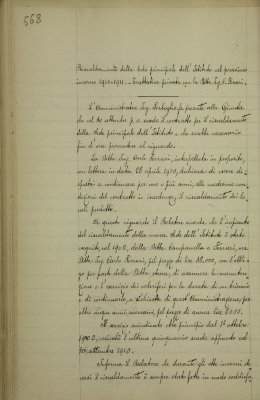 568
Riscaldamento della sede principale dell'Istituto nel prossimo
inverno 1910-1911. - Trattativa privata con la Ditta Ing. C. Ferrari.
L'Amministratore Ing. fa presente alla Giunta
che col 30 settembre p.v. scade il contratto per il riscaldamento
della sede principale dell'Istituto e che sarebbe necessario
fin d'ora provvedere al riguardo.
La Ditta Ing. Carlo Ferrari, interpellata in proposito,
con lettera in data 28 aprile 1910, dichiara di essere di-
sposta a continuare per uno o più anni, alle medesime con-
dizioni del contratto in scadenza, il riscaldamento dei lo-
cali predetti.
A questo riguardo il Relatore ricorda che l'impianto
del riscaldamento della nuova sede dell'Istituto è stato
eseguito, nel 1902, dalla Ditta e Ferrari, ora
Ditta Ing. Carlo Ferrari, pel prezzo di lire 38,000, con l'obbli-
go per parte della Ditta stessa, di assumere la manuten-
zione e l'esercizio dei caloriferi per la durata di un triennio
e di continuarlo, a richiesta di questa Amministrazione, per
altri cinque anni successivi, pel prezzo di annue lire 8000.
Il servizio avendo avuto principio dal 1° ottobre
1902, cosicchè l'ultimo quinquennio scade appunto col
30 settembre 1910.
Informa il Relatore che durante gli otto inverni de-
corsi il riscaldamento è sempre stato fatto in modo soddisfa-